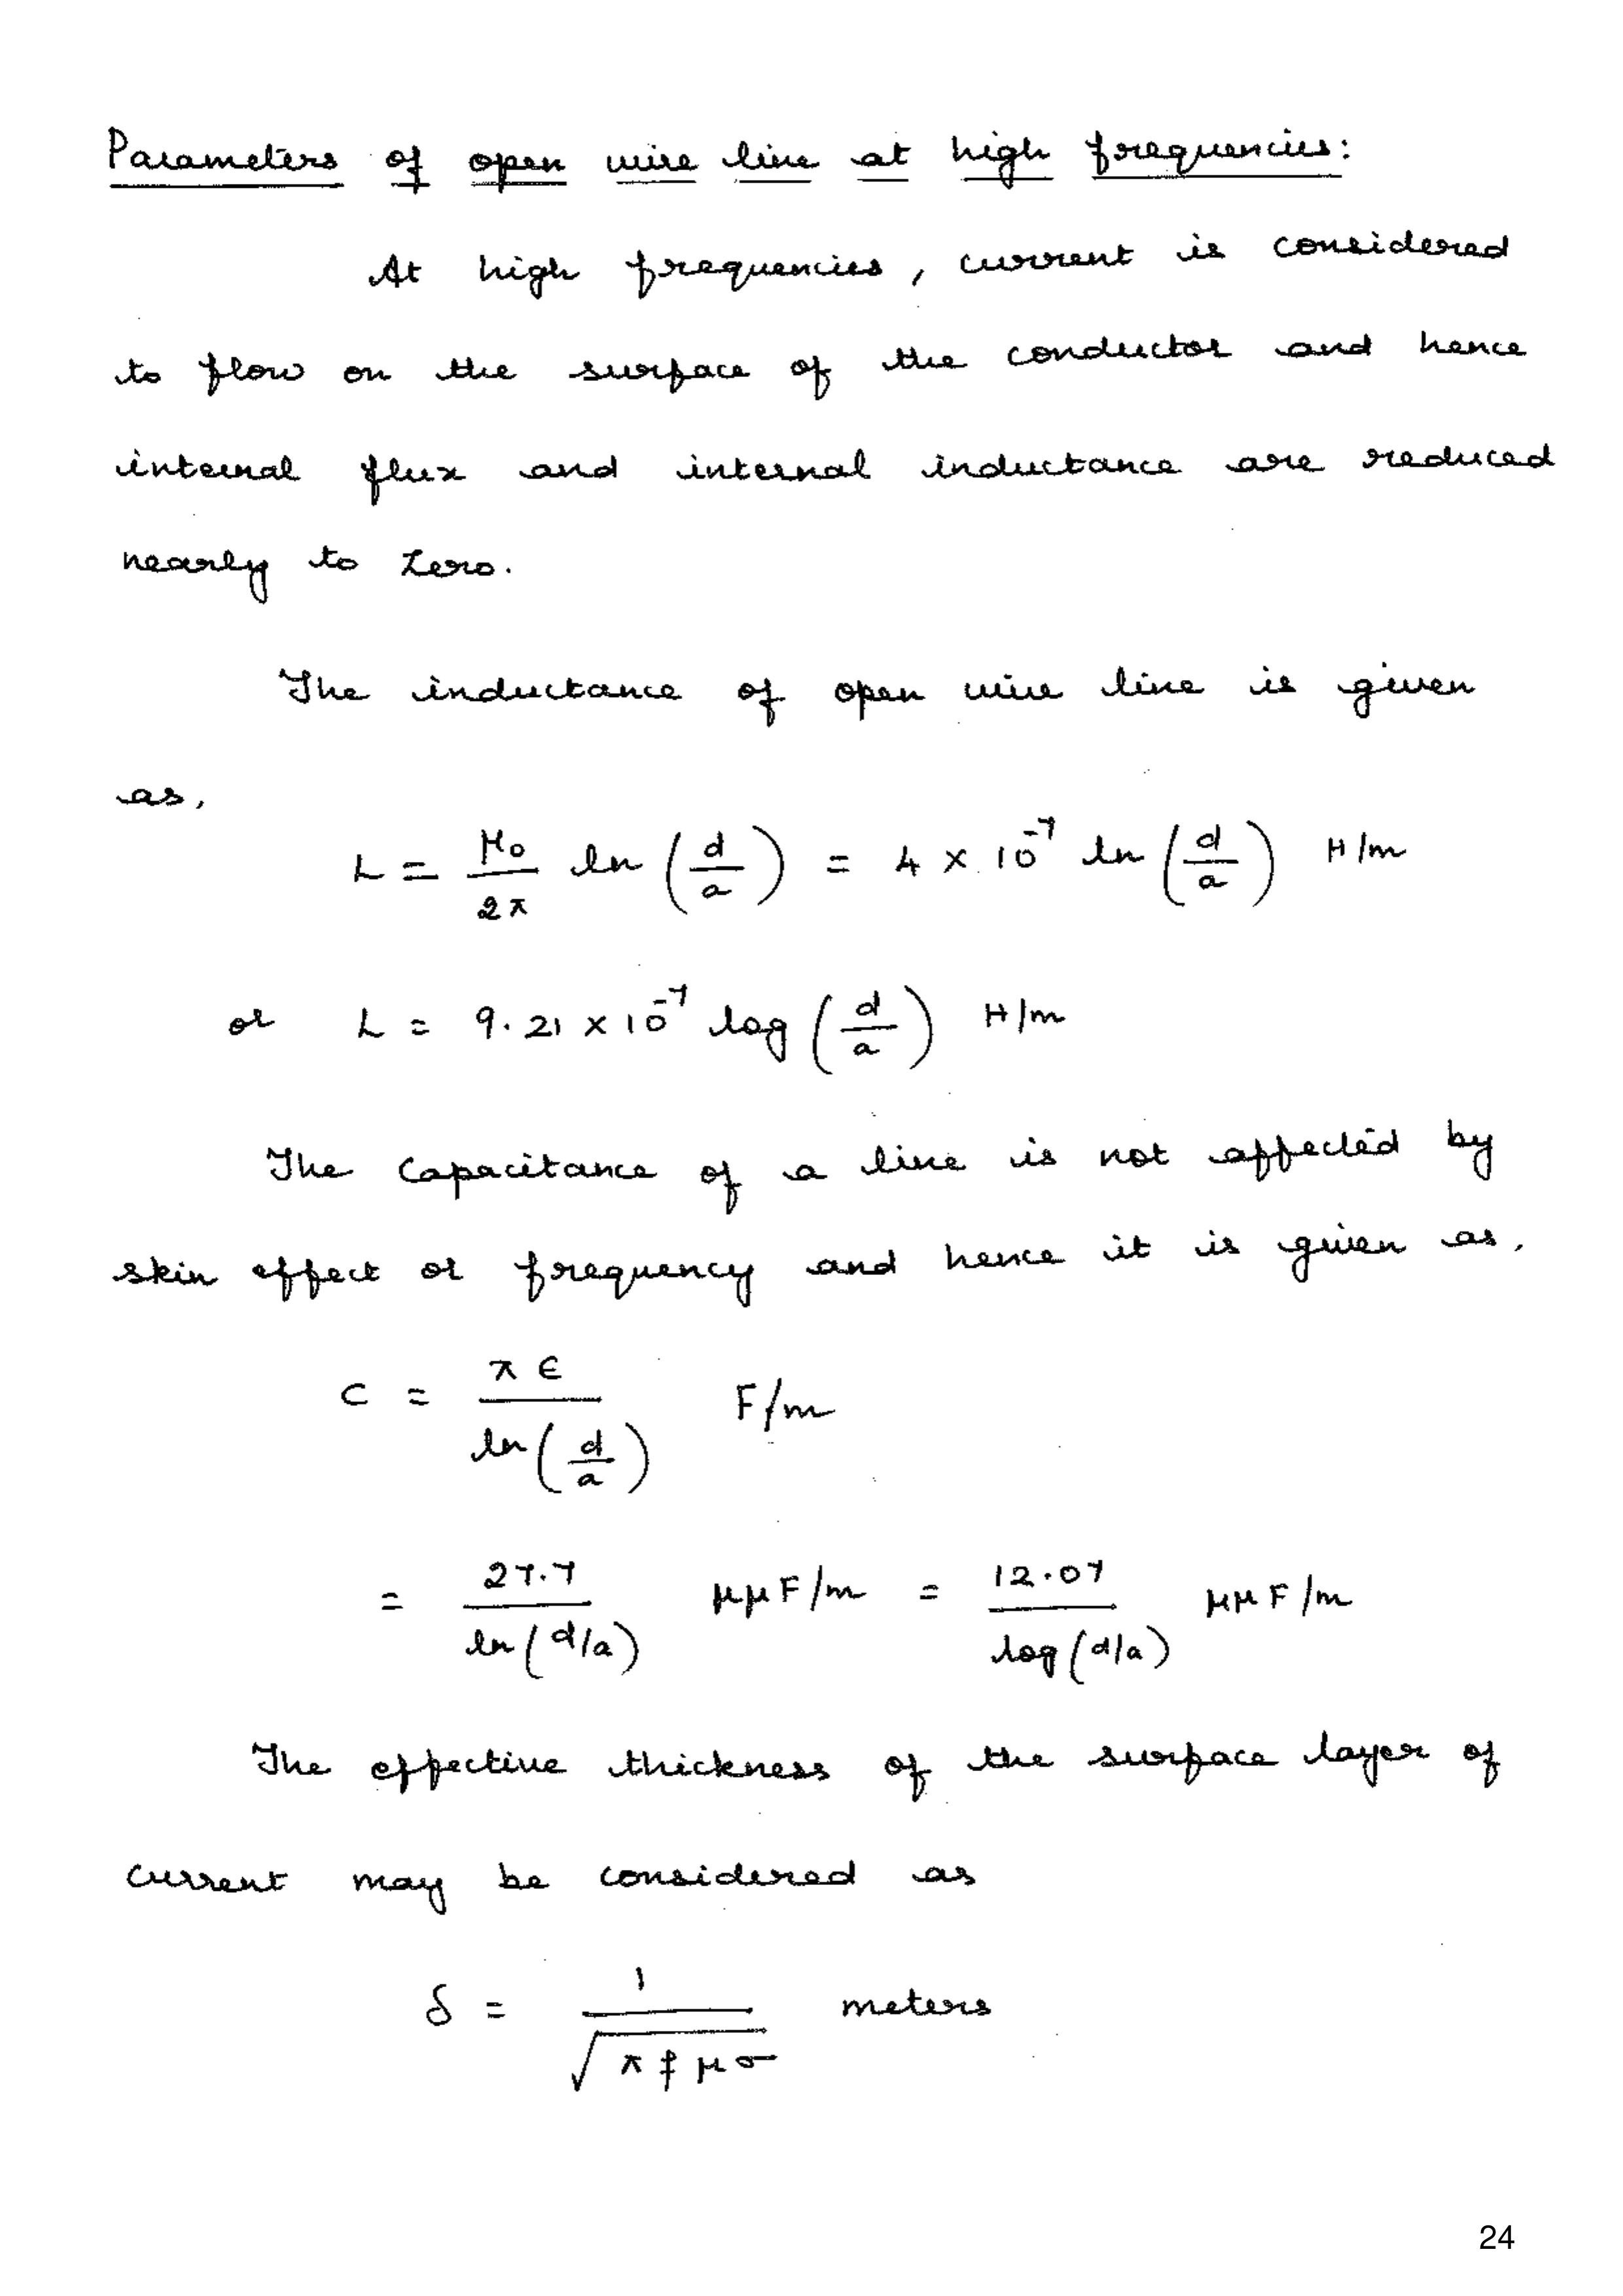 Parameters of open wire line at high frequencies:
At high frequencies, current is considered
to flow on the surface of the conductor and hence
internal flux and internal inductance are reduced
nearly to Zero.
The inductance of open wire line is given
as,
L = μ₀/2π ln (d/a) = 4 × 10⁻⁷ ln (d/a) H/m
or L = 9.21 × 10⁻⁷ log (d/a) H/m
The Capacitance of a line is not affected by
skin effect or frequency and hence it is given as,
C = π ϵ / ln (d/a) F/m
= 27.7 / ln (d/a) μμF/m = 12.07 / log (d/a) μμF/m
The effective thickness of the surface layer of
current may be considered as
δ = 1 / √(π f μ σ) meters
24